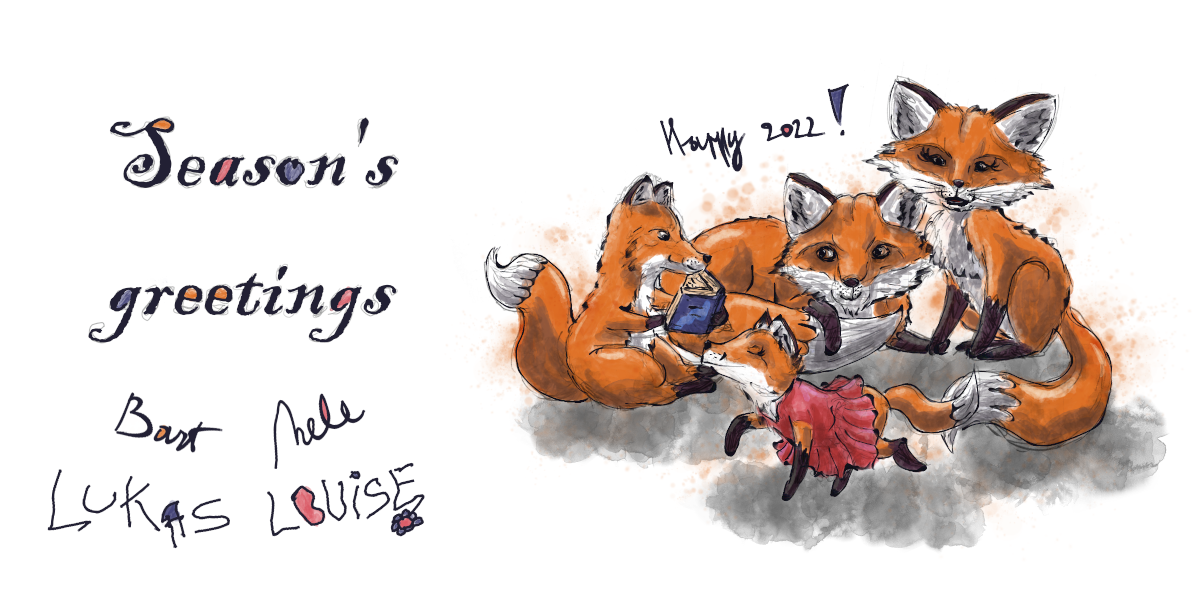 Season's
greetings
Bart Nele
LUKAS LOUiSE
Happy 2022!